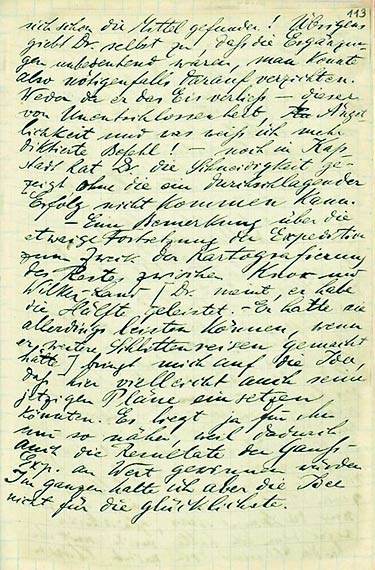 113
sich schon die Mittel gefunden! Übrigens
giebt Dr. selbst zu, daß die Ergänzun-
gen unbedeutend waren, man konnte
also nötigenfalls darauf verzichten.
Weder da er das Eis verließ – dieser
von Unentschlossenheit, Ängst
lichkeit und was weiß ich mehr
diktierte Befehl! – noch in Kap-
stadt hat D. die Schneidigkeit ge-
zeigt ohne die ein durchschlagender
Erfolg nicht kommen kann.
– Eine Bemerkung über die
etwaige Fortsetzung der Expedition
zum Zweck der Kartografierung
des Rests zwischen Knox und
Wilkes-Land [Dr. meint, er habe
die Hälfte geleistet. – Er hätte sie
allerdings leisten können, wenn
er weitere Schlittenreisen gemacht
hätte] bringt mich auf die Idee,
daß hier vielleicht auch seine
jetzigen Pläne einsetzen
könnten. Es liegt ja für ihn
um so näher, weil dadurch
auch die Resultate der Gauß-
Exp. an Wert gewinnen würden
Im ganzen hatte ich aber die Idee
nicht für die glücklichste.